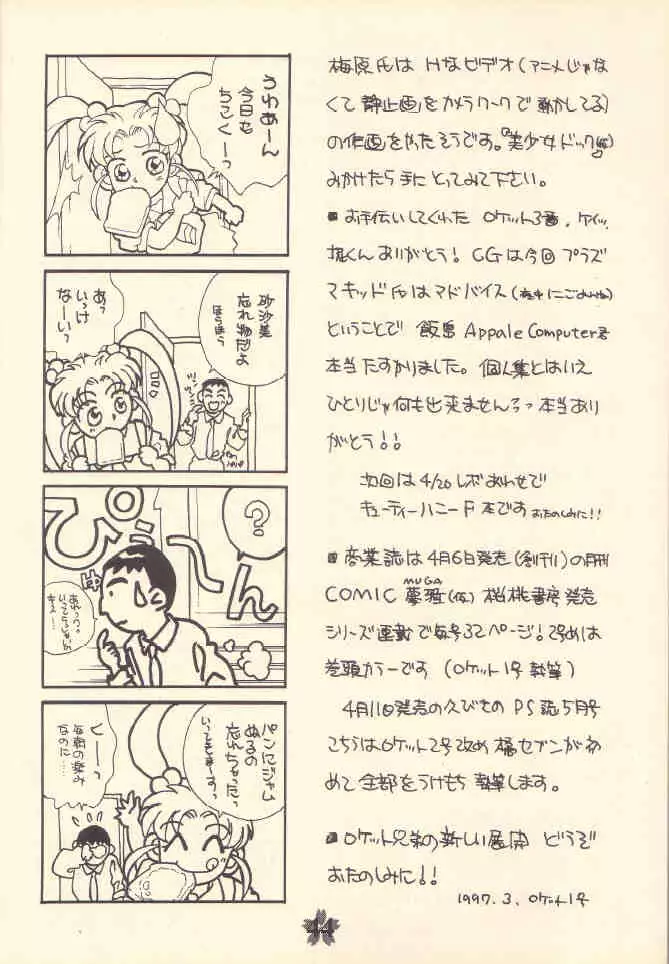 うわあーん
今日も
ちこくーっ
砂沙美
忘れ物だよ
ほらほら
あっ
いっけ
なーいっ
？
ぴゅーん
パンにジャム
ぬるの
忘れちゃったっ
いってきまーすっ
くーっ
毎朝の楽み
なのに……
梅原氏は Hなビデオ(アニメじゃな
くて 静止画をカメラワークで動かしてる)
の作画をやったそうです。『美少女ドック
みかけたら手にとってみて下さい。
■お手伝いしてくれた ロケット3番、ケイツ、
堀くんありがとう! CGは今回 プラズ
マキッド氏はアドバイス
ということで 飯島 Appale Computer君
本当たすかりました。個人集とはいえ
ひとりじゃ何も出来ませんろっ本当あり
がとう!!
次回は 4/20 レボあわせで
キューティーハニーF本です おたのしみに!!
■商業誌は4月6日発売(創刊)の月刊
MUGA
COMIC 夢雅(仮) 桜桃書房発売
シリーズ連載で毎号32ページ! 2号めは
巻頭カラーです (ロケット1号執筆)
4月11日発売の久びさの PS誌5月号
こちらはロケット2号改め 橘セブンが初
めて全部をうけもち執筆します。
■ロケット兄弟の新しい展開 どうぞ
おたのしみに!!
1997.3. ロケット1号
44